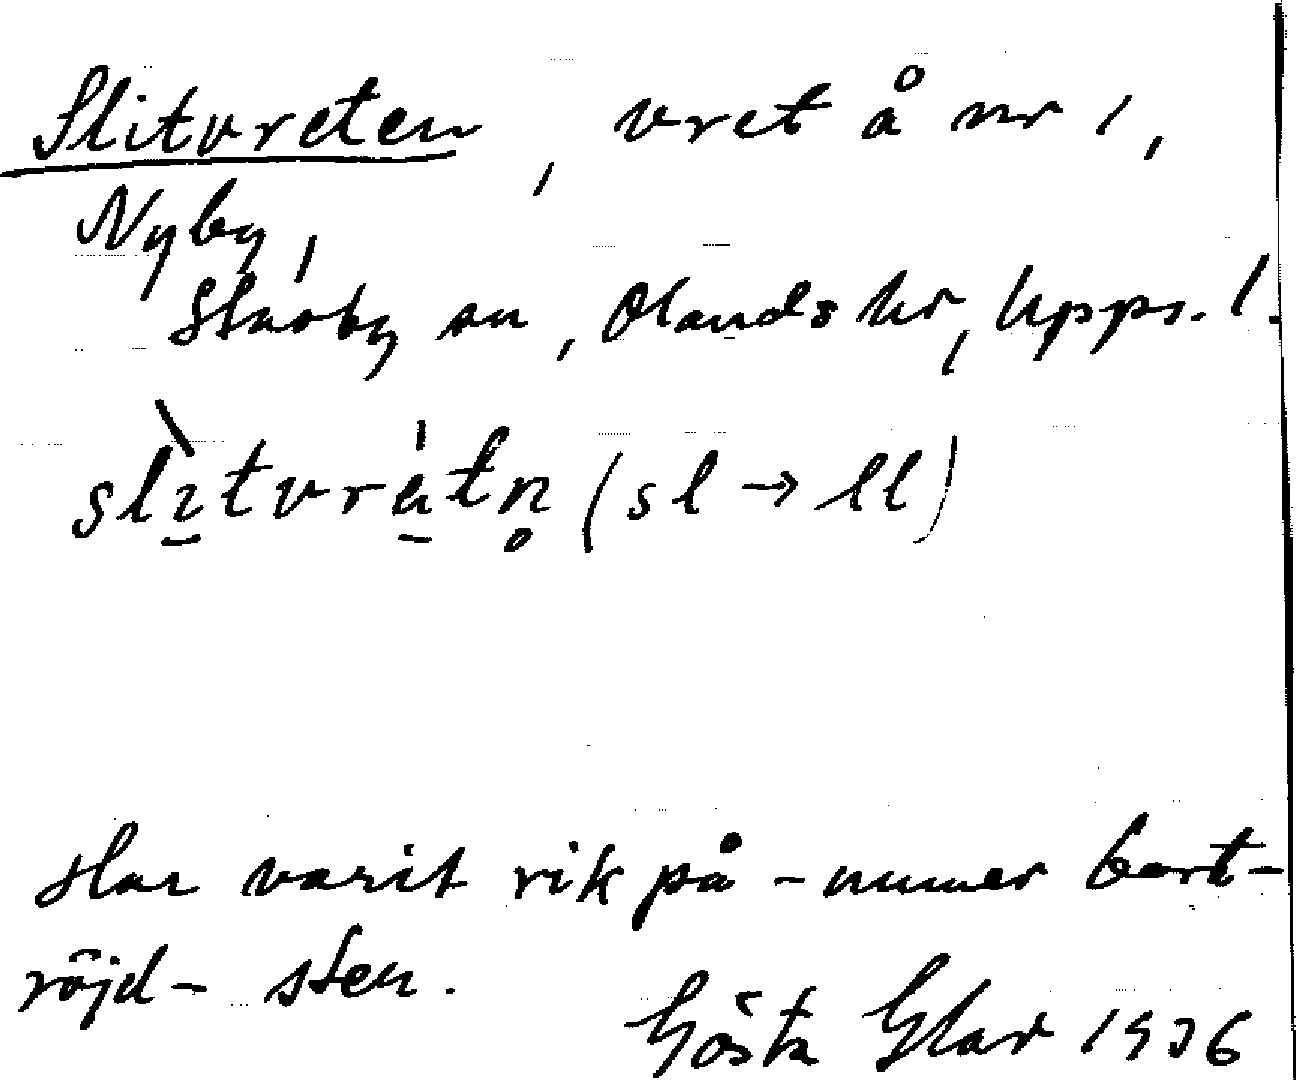 Slitvreten, vret å nr 1,
Nyby,
Skäfthammar sn, Olands hd, Upps. l.
slitvrätn (sl → ll)
Har varit rik på - numer bort-
röjd - sten.
Gösta 1936